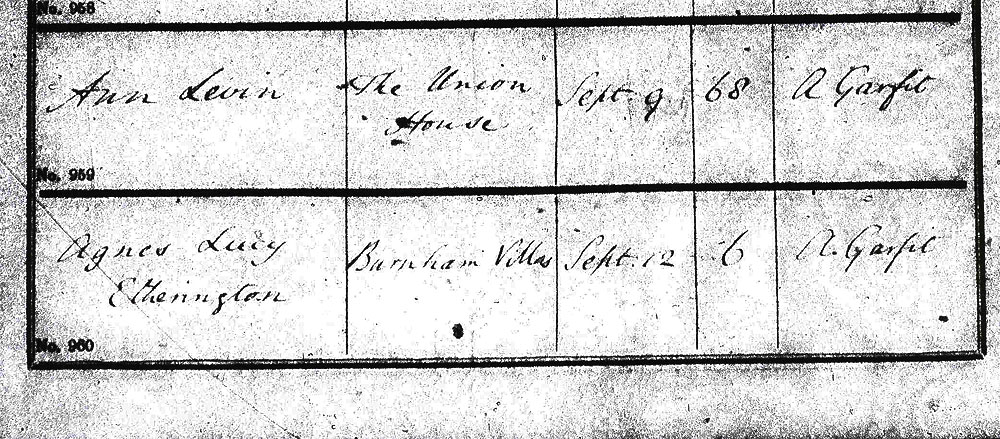 No. 958
Ann Levin The Union Sept. 9 68 A Garfit
House
No. 959
Agnes Lucy Burnham Villas Sept. 12 6 A. Garfit
Etherington
No. 960